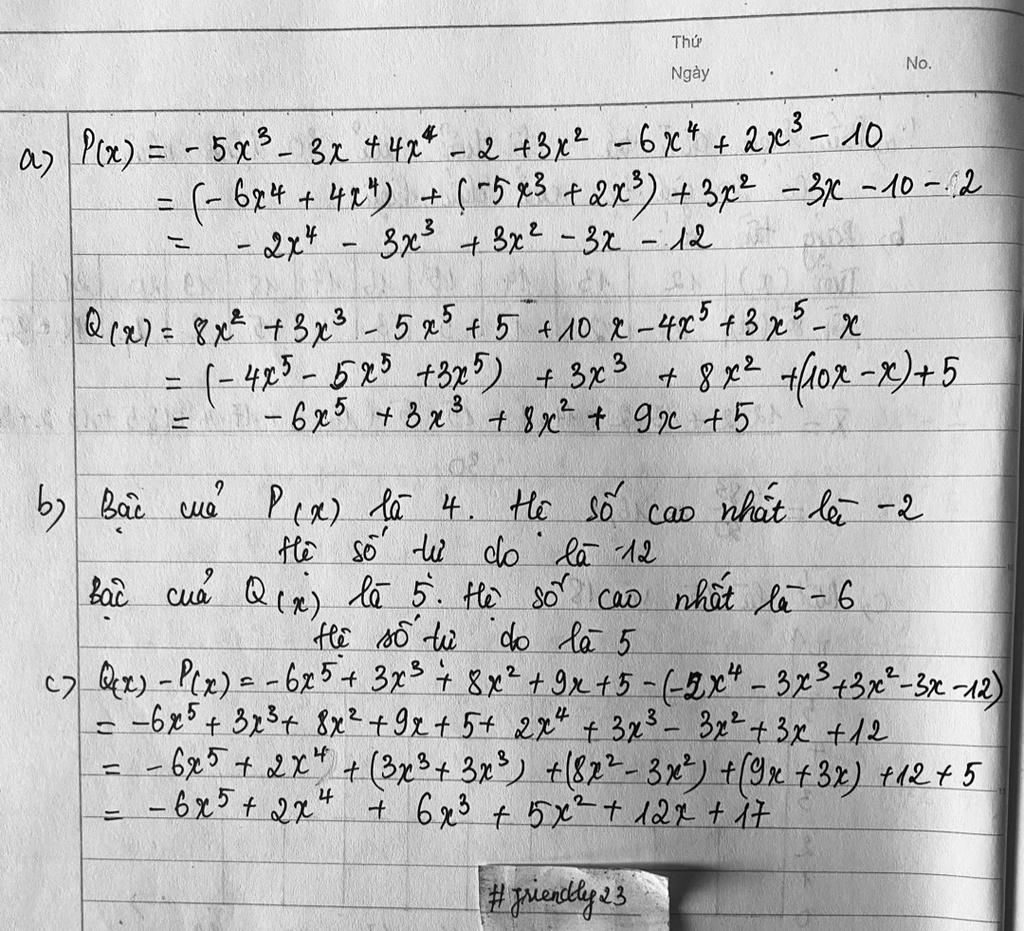 Thứ
Ngày . . No.
a) P(x) = - 5x³ - 3x + 4x⁴ - 2 + 3x² - 6x⁴ + 2x³ - 10
= (- 6x⁴ + 4x⁴) + (-5x³ + 2x³) + 3x² - 3x - 10 - 2
= - 2x⁴ - 3x³ + 3x² - 3x - 12
Q(x) = 8x² + 3x³ - 5x⁵ + 5 + 10x - 4x⁵ + 3x⁵ - x
= (- 4x⁵ - 5x⁵ + 3x⁵) + 3x³ + 8x² + (10x - x) + 5
= - 6x⁵ + 3x³ + 8x² + 9x + 5
b) Bậc của P(x) là 4. Hệ số cao nhất là -2
Hệ số tự do là -12
Bậc của Q(x) là 5. Hệ số cao nhất là -6
Hệ số tự do là 5
c) Q(x) - P(x) = - 6x⁵ + 3x³ + 8x² + 9x + 5 - (-2x⁴ - 3x³ + 3x² - 3x - 12)
= - 6x⁵ + 3x³ + 8x² + 9x + 5 + 2x⁴ + 3x³ - 3x² + 3x + 12
= - 6x⁵ + 2x⁴ + (3x³ + 3x³) + (8x² - 3x²) + (9x + 3x) + 12 + 5
= - 6x⁵ + 2x⁴ + 6x³ + 5x² + 12x + 17
# friendly23